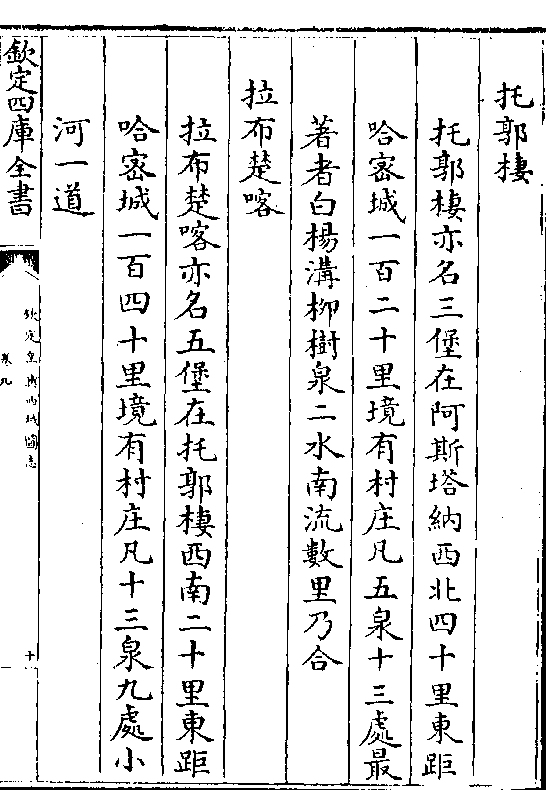 托郭棲
托郭棲亦名三堡在阿斯塔納西北四十里東距
哈密城一百二十里境有村庄凡五泉十三處最
著者白楊溝柳樹泉二水南流數里乃合
拉布楚喀
拉布楚喀亦名五堡在托郭棲西南二十里東距
哈密城一百四十里境有村庄凡十三泉九處小
河一道
欽定四庫全書
欽定皇輿西域圖志
卷九
十